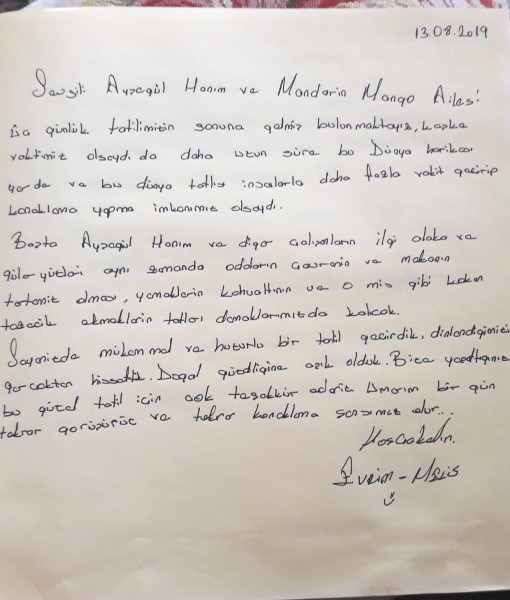 13.08.2019
Sevgili Ayşegül Hanım ve Mandarin Mango Ailesi
günlük tatilimizin sonuna gelmiş bulunmaktayız, keşke
vaktimiz olsaydı da daha uzun süre bu Dünya harikası
yerde ve bu dünya tatlısı insanlarla daha fazla vakit geçirip
konaklama yapma imkanımız olsaydı.
Başta Ayşegül Hanım ve diğer çalışanların ilgi alaka ve
güler yüzleri aynı zamanda odaların çevrenin ve mekanın
tertemiz olması, yemeklerin kahvaltının ve o mis gibi kokan
tazecik ekmeklerin tatları damaklarımızda kalacak.
Sayenizde mükemmel ve huzurlu bir tatil geçirdik, dinlendiğimizi
gerçekten hissettik. Doğal güzelliğine aşık olduk. Bize yaşattığınız
bu güzel tatil için çok teşekkür ederiz umarım bir gün
tekrar görüşürüz ve tekrar konaklama şansımız olur...
Hoşçakalın.
Evrim - Melis